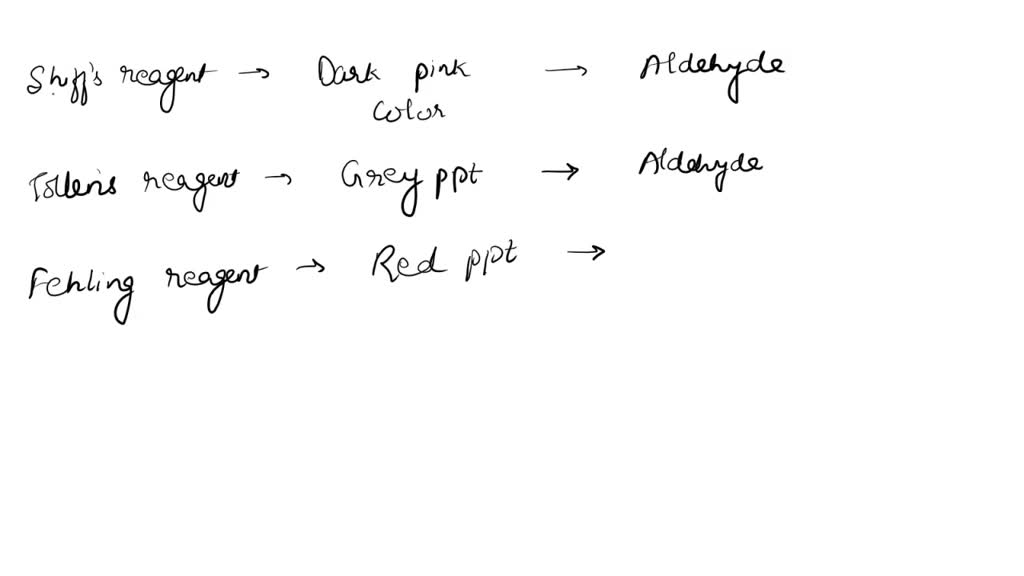 Shiff's reagent → Dark pink → Aldehyde
Color
Tollen's reagent → Grey ppt → Aldehyde
Fehling reagent → Red ppt →